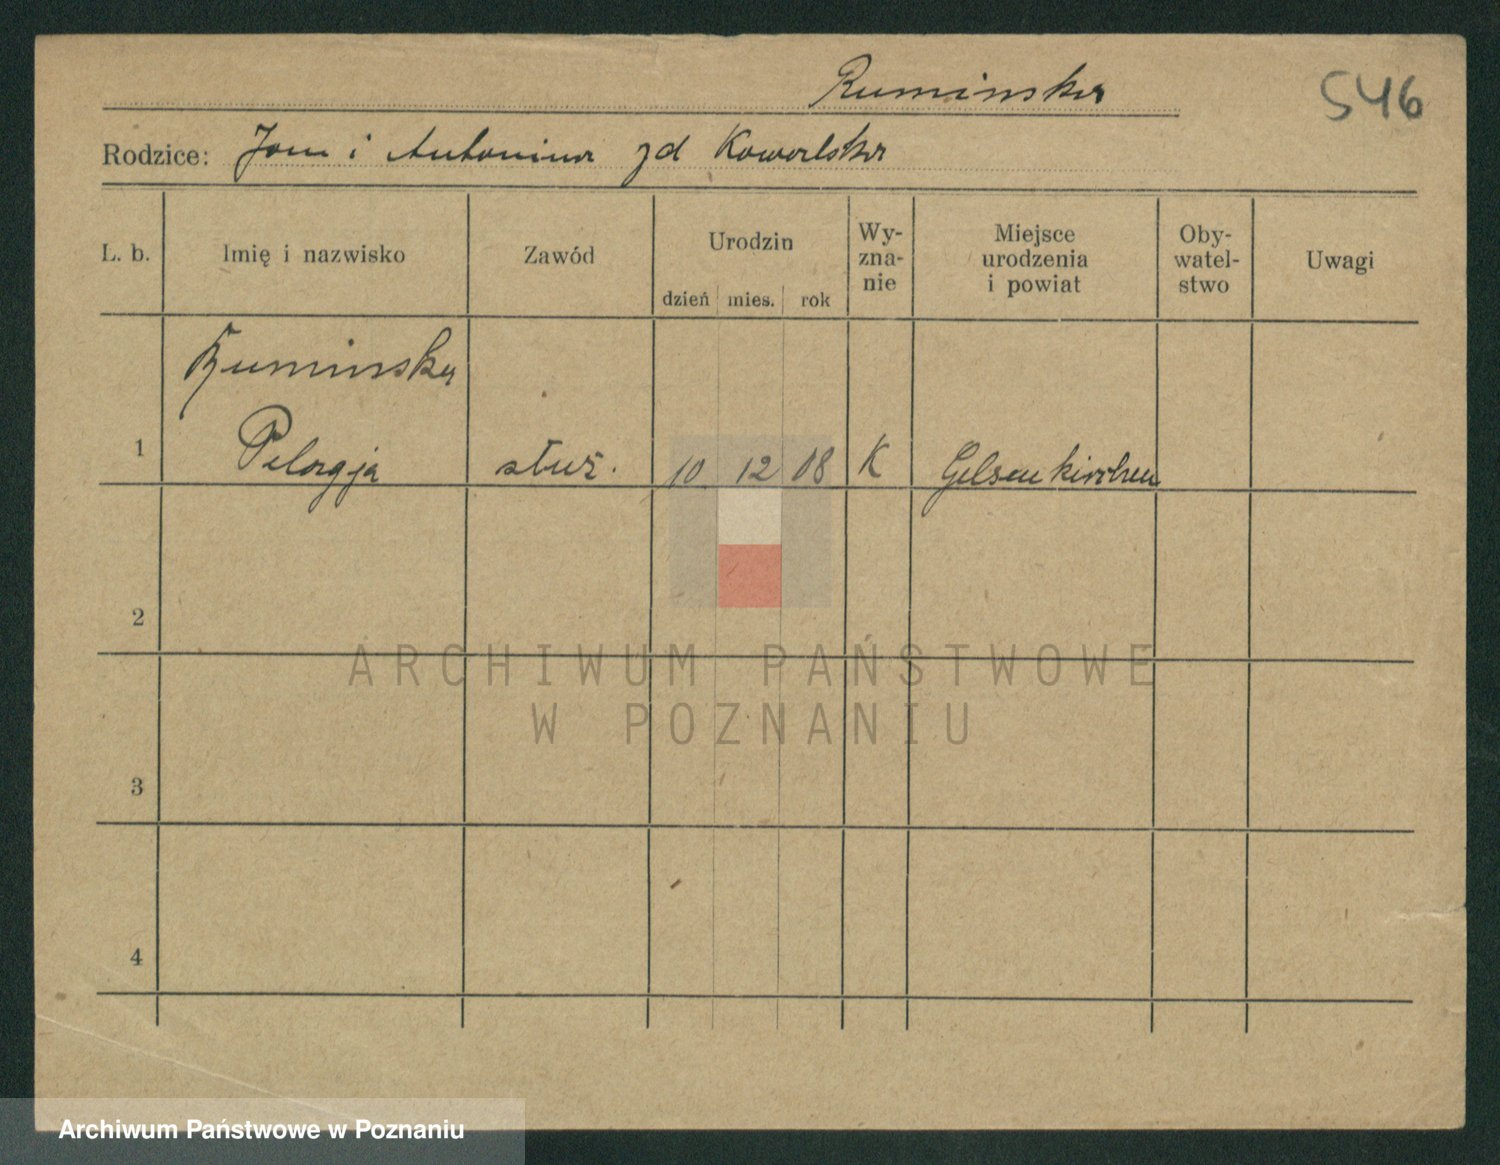 Ruminska
546
Rodzice: Jan i Antonina zd Kowalska
L. b. Imię i nazwisko Zawód Urodzin Wy-zna-nie Miejsce urodzenia i powiat Oby-watel-stwo Uwagi
dzień mies. rok
Ruminska
1 Pelagja służ. 10 12 08 K Gelsenkirchen
2
ARCHIWUM PAŃSTWOWE
W POZNANIU
3
4
Archiwum Państwowe w Poznaniu